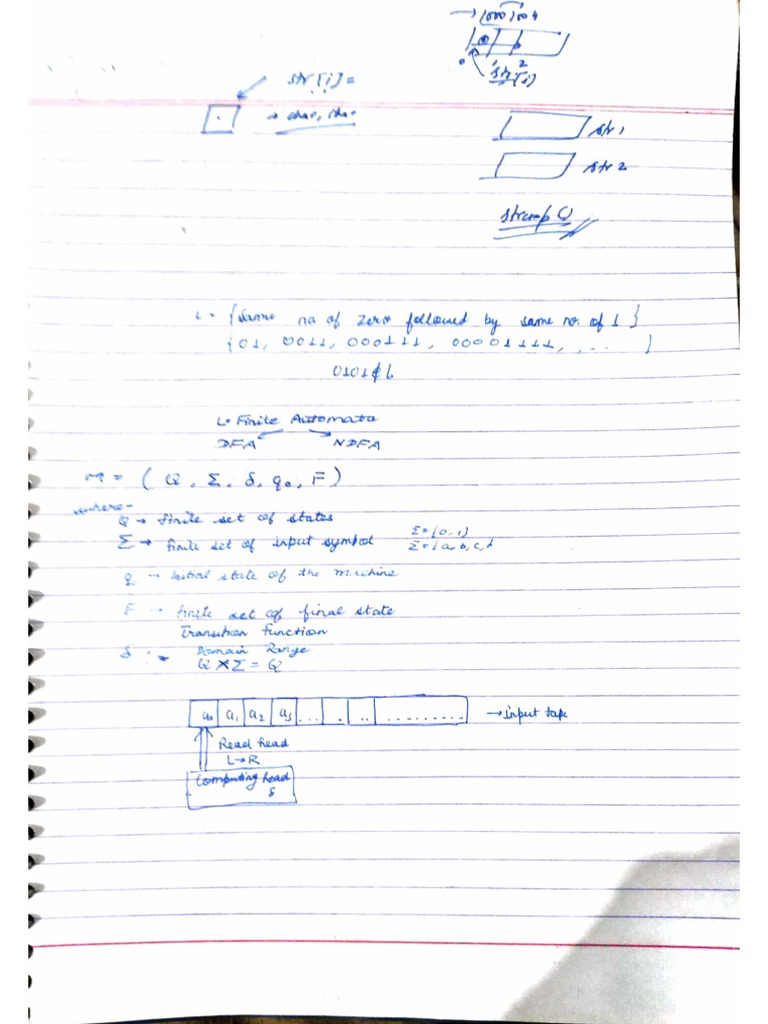 → 1000, 1004
0 1 2
str[i]
str[i] =
→ char, char
str 1
str 2
strcmp()
L = {same no of zero followed by same no. of 1}
{01, 0011, 000111, 00001111, , ... }
0101 ∉ L
L→ Finite Automata
DFA NDFA
M = (Q, Σ, δ, q₀, F)
where-
Q → finite set of states
Σ → finite set of input symbol Σ = {0, 1}
Σ = {a, b, c, d
q → Initial state of the machine
F → finite set of final state
Transition Function
δ :- Domain Range
Q × Σ = Q
a₀ a₁ a₂ a₃ ... . .. ......... → input tape
Read head
L→R
Computing head
δ